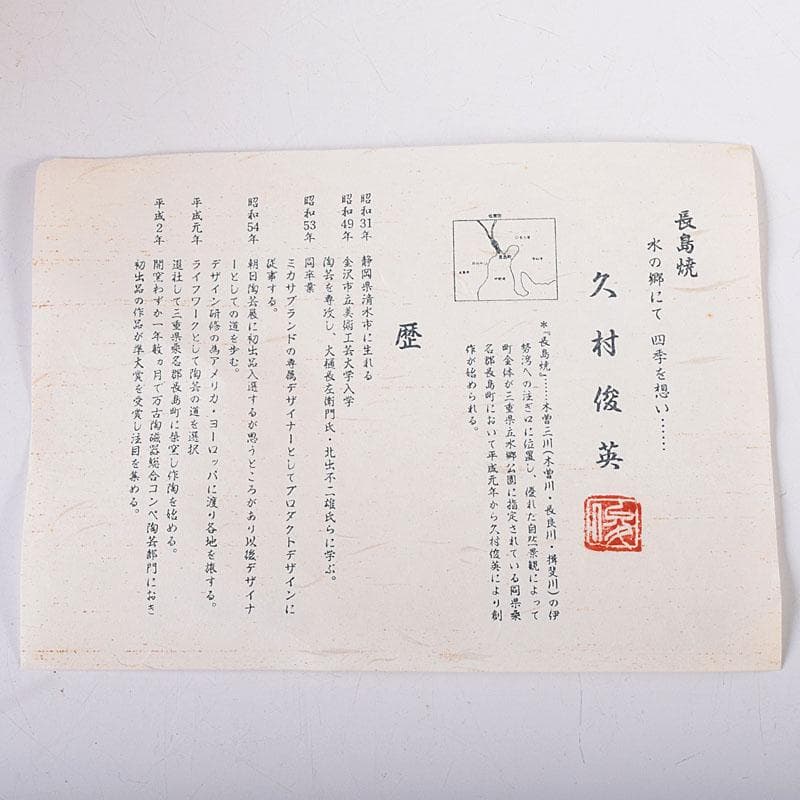 長島焼
水の郷にて 四季を想い……
久村俊英
＊『長島焼』……木曽三川(木曽川・長良川・揖斐川)の伊
勢湾への注ぎ口に位置し、優れた自然景観によって
町全体が三重県立水郷公園に指定されている同県桑
名郡長島町において平成元年から久村俊英により創
作が始められる。
歴
昭和31年 静岡県清水市に生れる
昭和49年 金沢市立美術工芸大学入学
陶芸を専攻し、大樋長左衛門氏・北出不二雄氏らに学ぶ。
昭和53年 同卒業
ミカサブランドの専属デザイナーとしてプロダクトデザインに
従事する。
昭和54年 朝日陶芸展に初出品入選するが思うところがあり以後デザイナ
ーとしての道を歩む。
デザイン研修の為アメリカ・ヨーロッパに渡り各地を旅する。
平成元年 ライフワークとして陶芸の道を選択
退社して三重県桑名郡長島町に築窯し作陶を始める。
平成2年 開窯わずか一年数ヵ月で万古陶磁器総合コンペ陶芸部門におき
初出品の作品が準大賞を受賞し注目を集める。